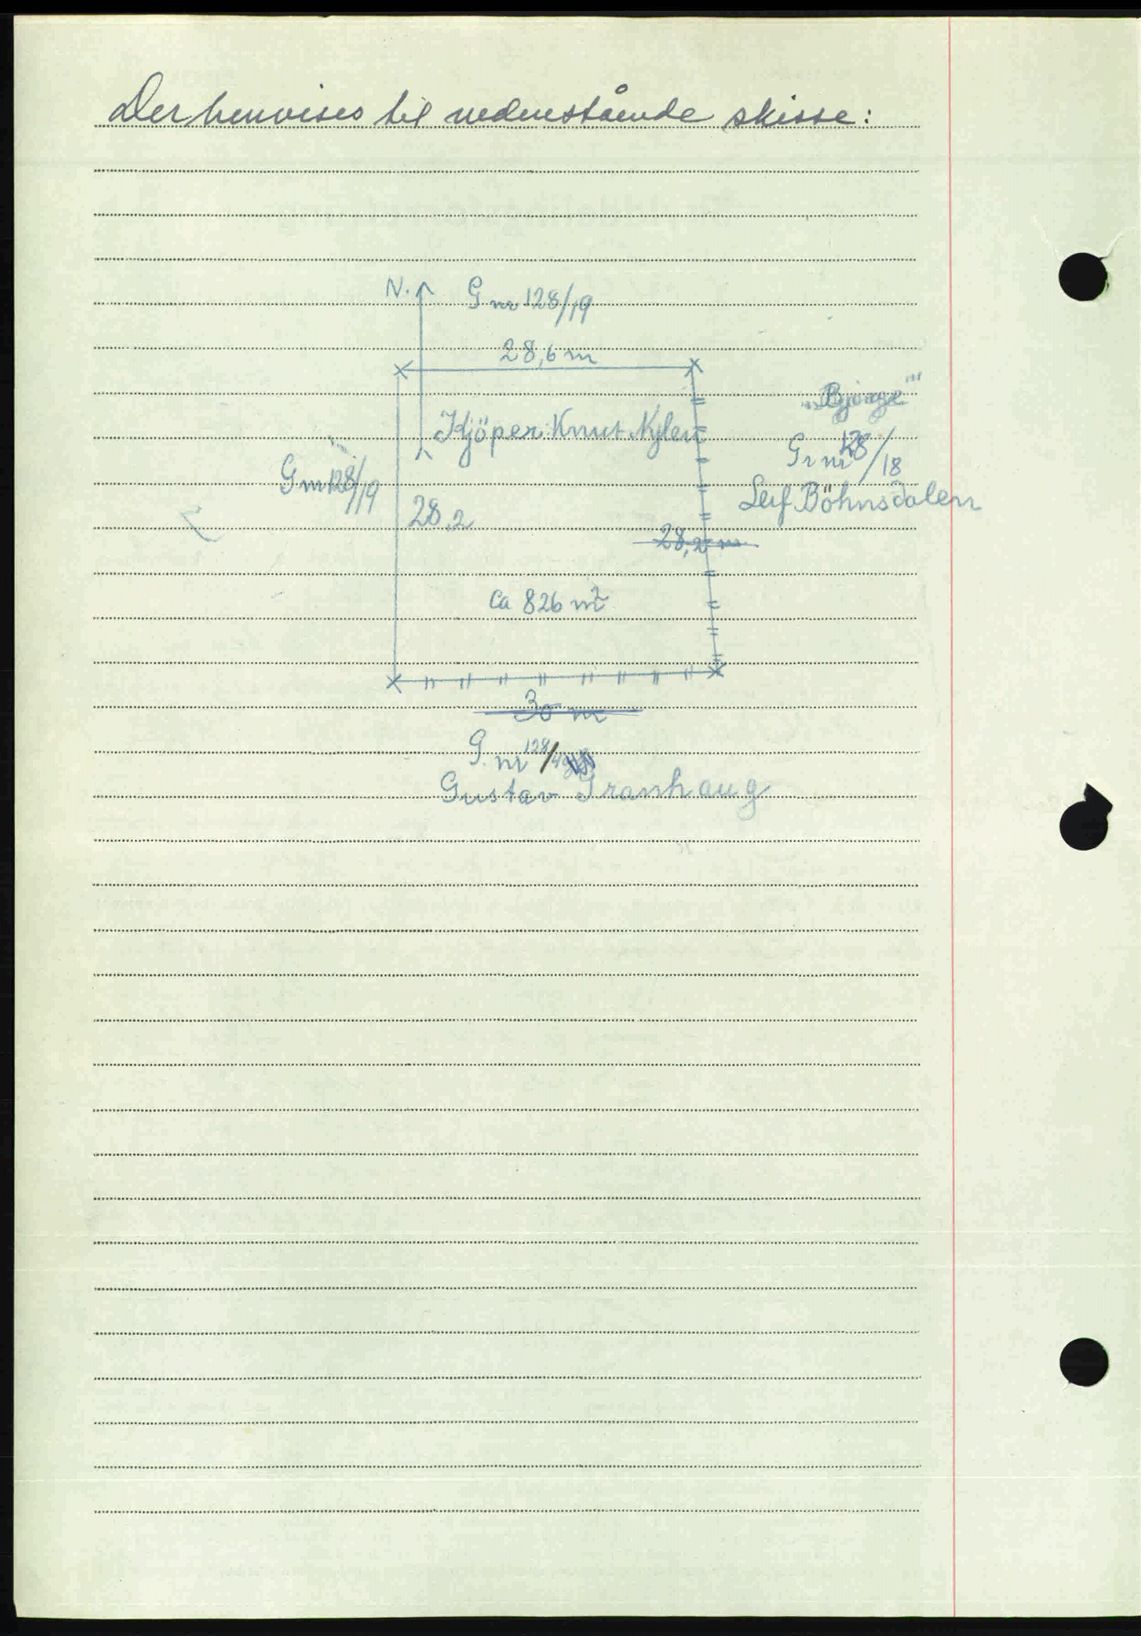 Der henvises til nedenstående skisse:
N. G nr 128/19
28,6 m
"Bjørge"
Kjöper: Knut Nylen
Gr nr 128/18
G nr 128/19
Leif Böhnsdalen
28,2
28,2 m
ca 826 m²
30 m
G. nr 128/
Gustav Tranhaug